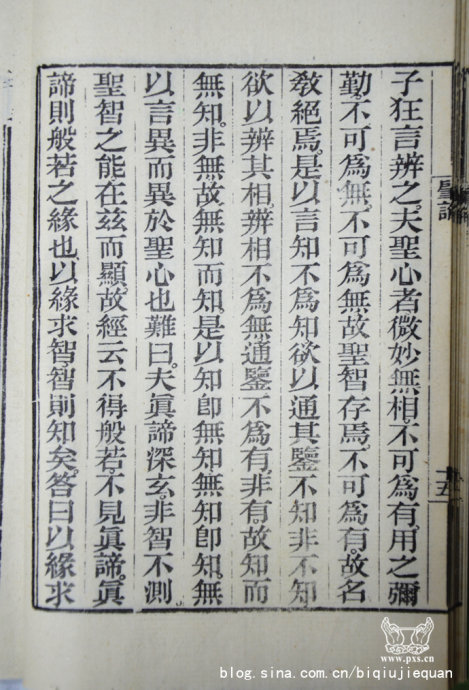 子狂言辨之夫聖心者微妙無相不可爲有用之彌
勤不可爲無不可爲無故聖智存焉不可爲有故名
敎絕焉是以言知不爲知欲以通其鑒不知非不知
欲以辨其相辨相不爲無通鑒不爲有非有故知而
無知非無故無知而知是以知卽無知無知卽知無
以言異而異於聖心也難曰夫眞諦深玄非智不測
聖智之能在茲而顯故經云不得般若不見眞諦眞
諦則般若之緣也以緣求智智則知矣答曰以緣求
www.pxs.cn
blog.sina.com.cn/biqiujiequan